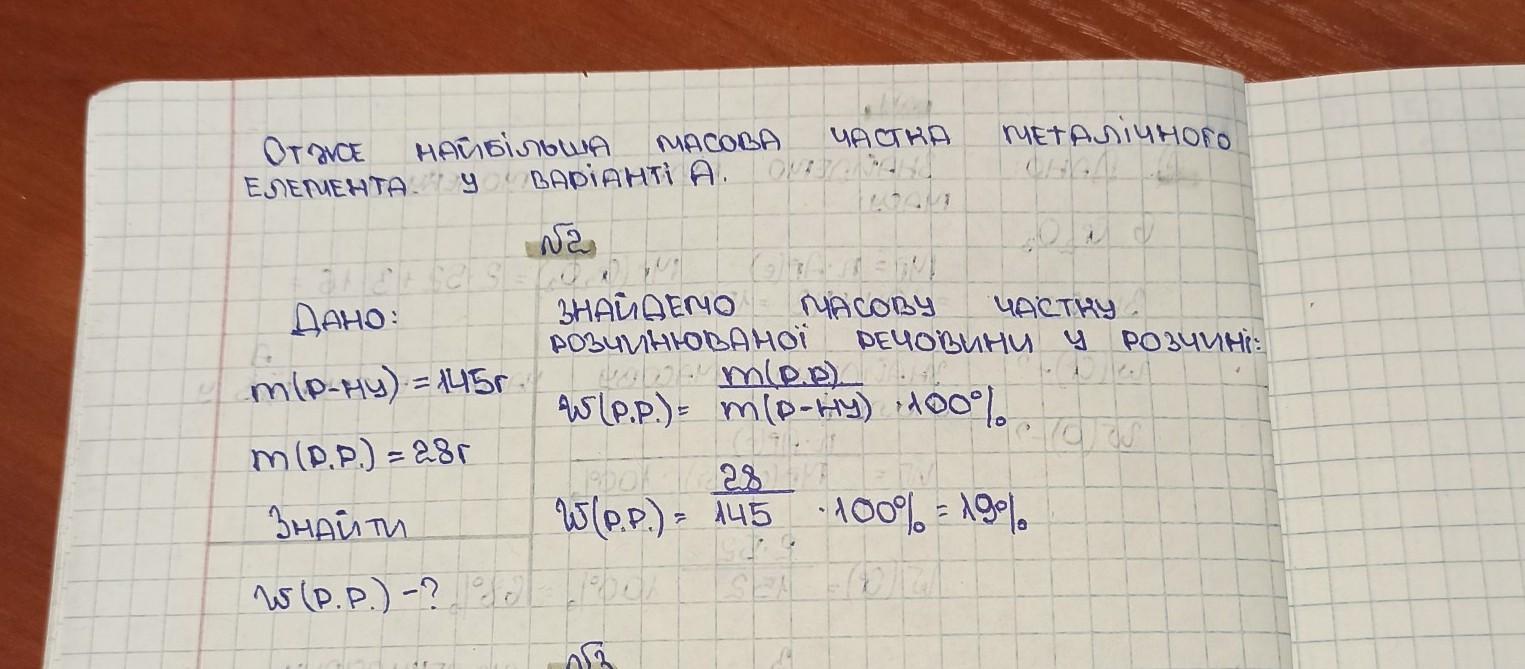 Отже найбільша масова частка металічного
елемента у варіанті А.
№2
Дано:
m(р-ну) = 145г
m(р.р.) = 28г
Знайти
w(р.р.) - ?
Знайдемо масову частку
розчинюваної речовини у розчині:
w(р.р.) = m(р.р) / m(р-ну) · 100%
w(р.р.) = 28 / 145 · 100% = 19%
№3